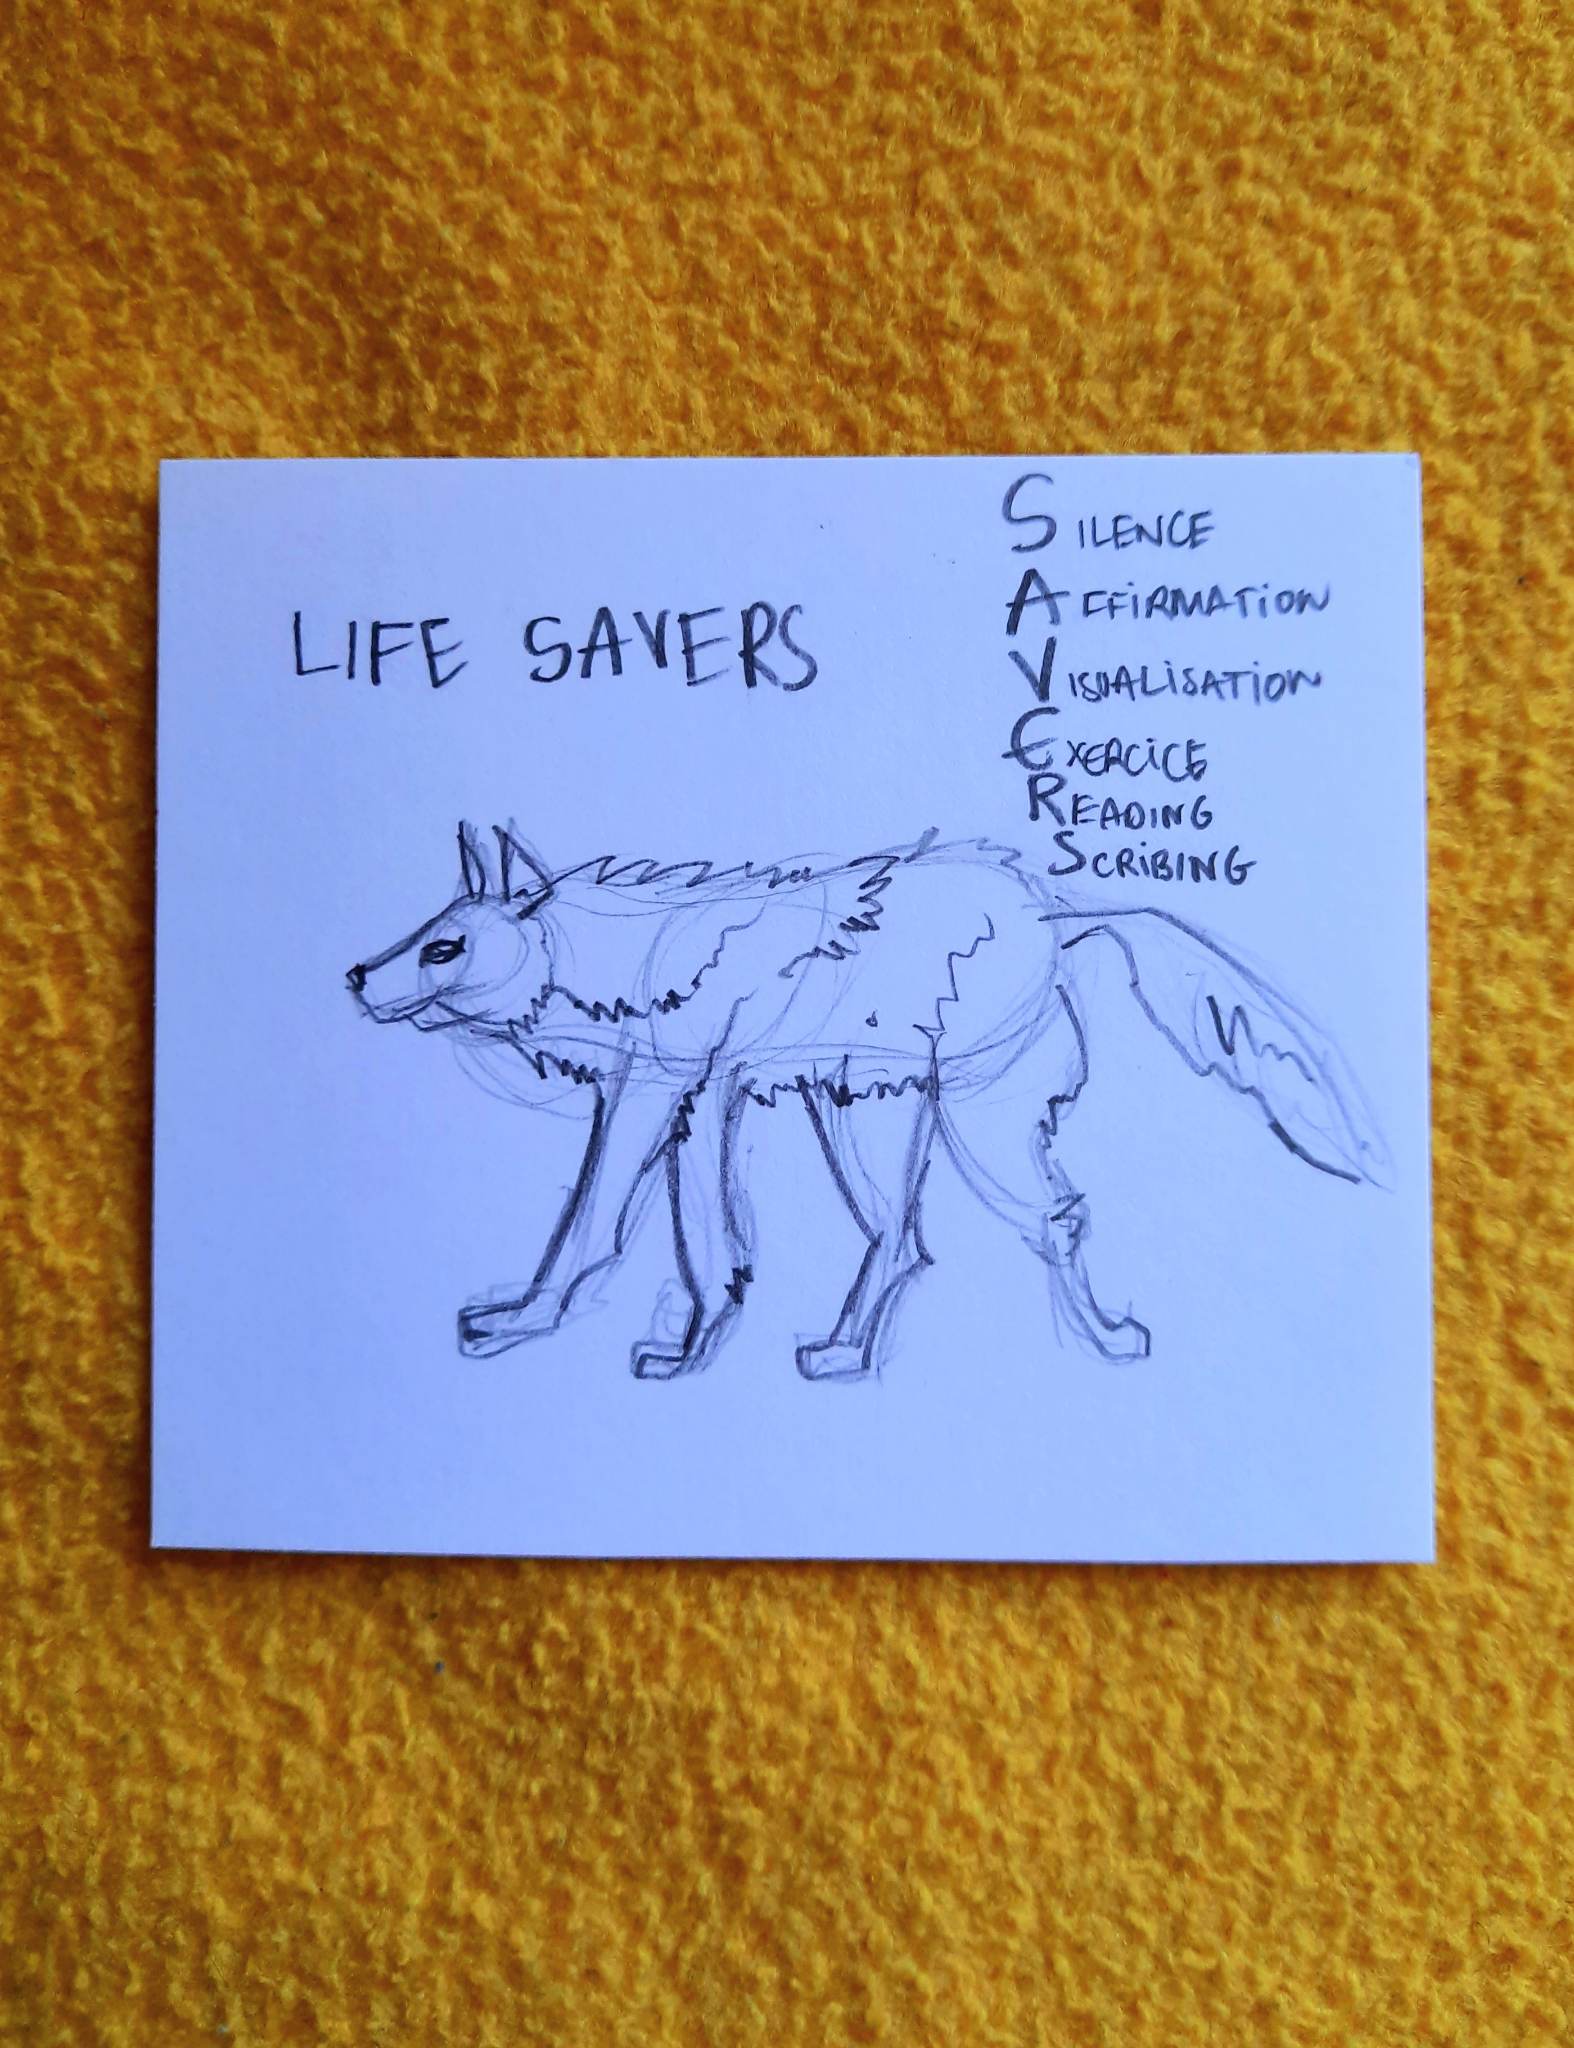 LIFE SAVERS
SILENCE
AFFIRMATION
VISUALISATION
EXERCICE
READING
SCRIBING